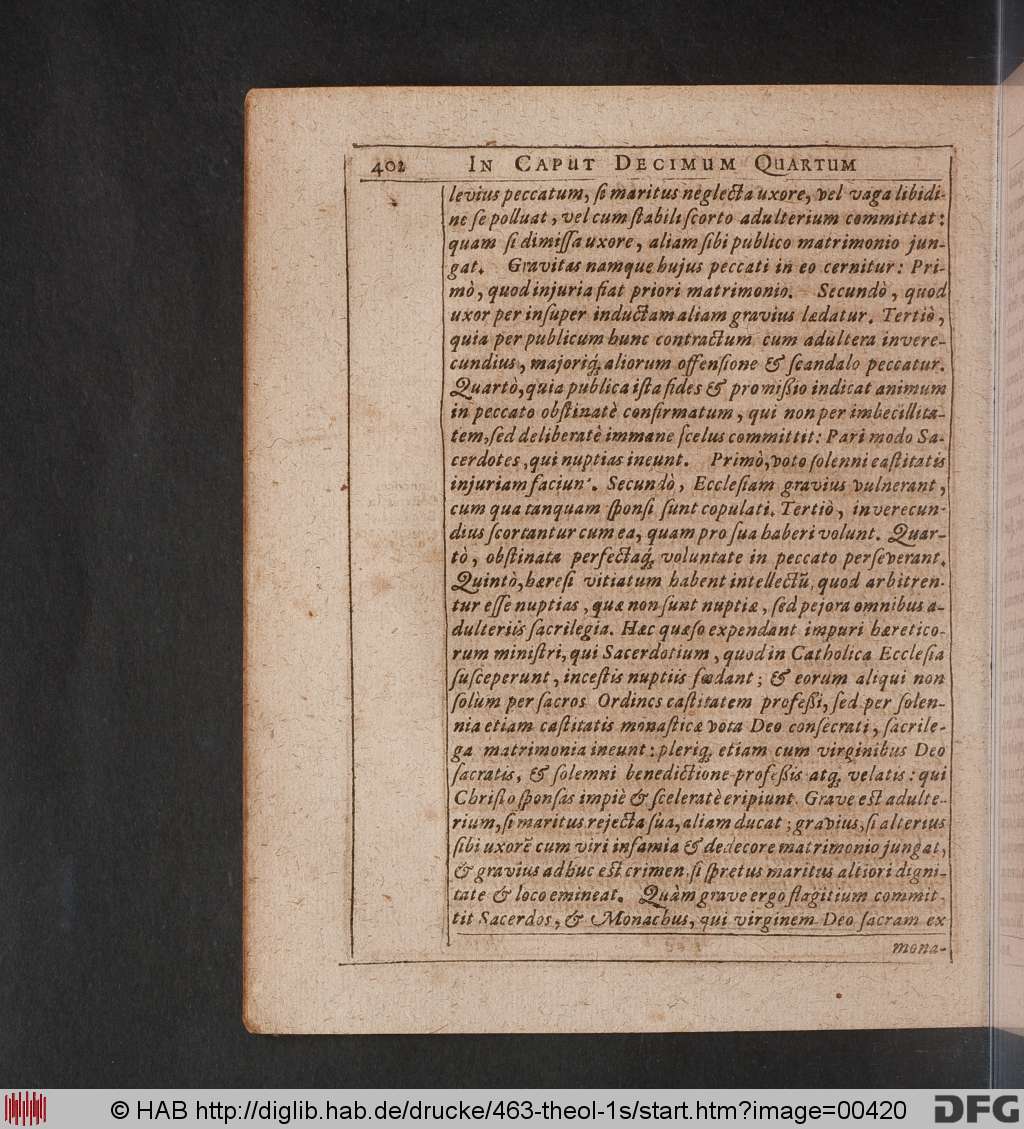 402 IN CAPUT DECIMUM QUARTUM
levius peccatum, ſi maritus neglecta uxore, vel vaga libidi-
ne ſe polluat, vel cum ſtabili ſcorto adulterium committat:
quam ſi dimiſſa uxore, aliam ſibi publico matrimonio jun-
gat. Gravitas namque hujus peccati in eo cernitur: Pri-
mò, quod injuria fiat priori matrimonio. Secundò, quod
uxor per inſuper inductam aliam gravius lædatur. Tertiò,
quia per publicum hunc contractum cum adultera invere-
cundius, majoriq́; aliorum offenſione & ſcandalo peccatur.
Quartò, quia publica iſta fides & promiſsio indicat animum
in peccato obſtinatè confirmatum, qui non per imbecillita-
tem, ſed deliberatè immane ſcelus committit: Pari modo Sa-
cerdotes, qui nuptias ineunt. Primò, voto ſolenni caſtitatis
injuriam faciun. Secundò, Eccleſiam gravius vulnerant,
cum qua tanquam ſponſi ſunt copulati. Tertiò, inverecun-
dius ſcortantur cum ea, quam pro ſua haberi volunt. Quar-
tò, obſtinata perfectaq́; voluntate in peccato perſeverant.
Quintò, hæreſi vitiatum habent intellectū, quod arbitren-
tur eſſe nuptias, quæ non ſunt nuptiæ, ſed pejora omnibus a-
dulteriis ſacrilegia. Hæc quæſo expendant impuri hæretico-
rum miniſtri, qui Sacerdotium, quod in Catholica Eccleſia
ſuſceperunt, inceſtis nuptiis fœdant; & eorum aliqui non
ſolùm per ſacros Ordines caſtitatem profeſsi, ſed per ſolen-
nia etiam caſtitatis monaſticæ vota Deo conſecrati, ſacrile-
ga matrimonia ineunt: pleriq́; etiam cum virginibus Deo
ſacratis, & ſolemni benedictione profeſsis atq́; velatis: qui
Chriſto ſponſas impiè & ſceleratè eripiunt. Grave eſt adulte-
rium, ſi maritus rejecta ſua, aliam ducat; gravius, ſi alterius
ſibi uxorē cum viri infamia & dedecore matrimonio jungat,
& gravius adhuc eſt crimen, ſi ſpretus maritus altiori digni-
tate & loco emineat. Quàm grave ergo flagitium commit-
tit Sacerdos, & Monachus, qui virginem Deo ſacram ex
mona-
© HAB http://diglib.hab.de/drucke/463-theol-1s/start.htm?image=00420
DFG